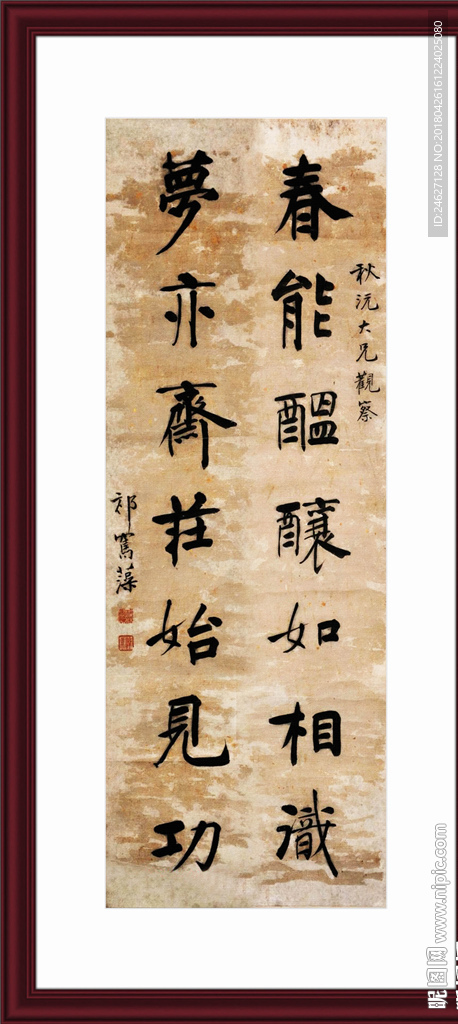 秋沅大兄觀察
春能醞釀如相識
夢亦齋莊始見功
祁寯藻
ID:24627128 NO:20180426161224025080
昵图网 www.nipic.com